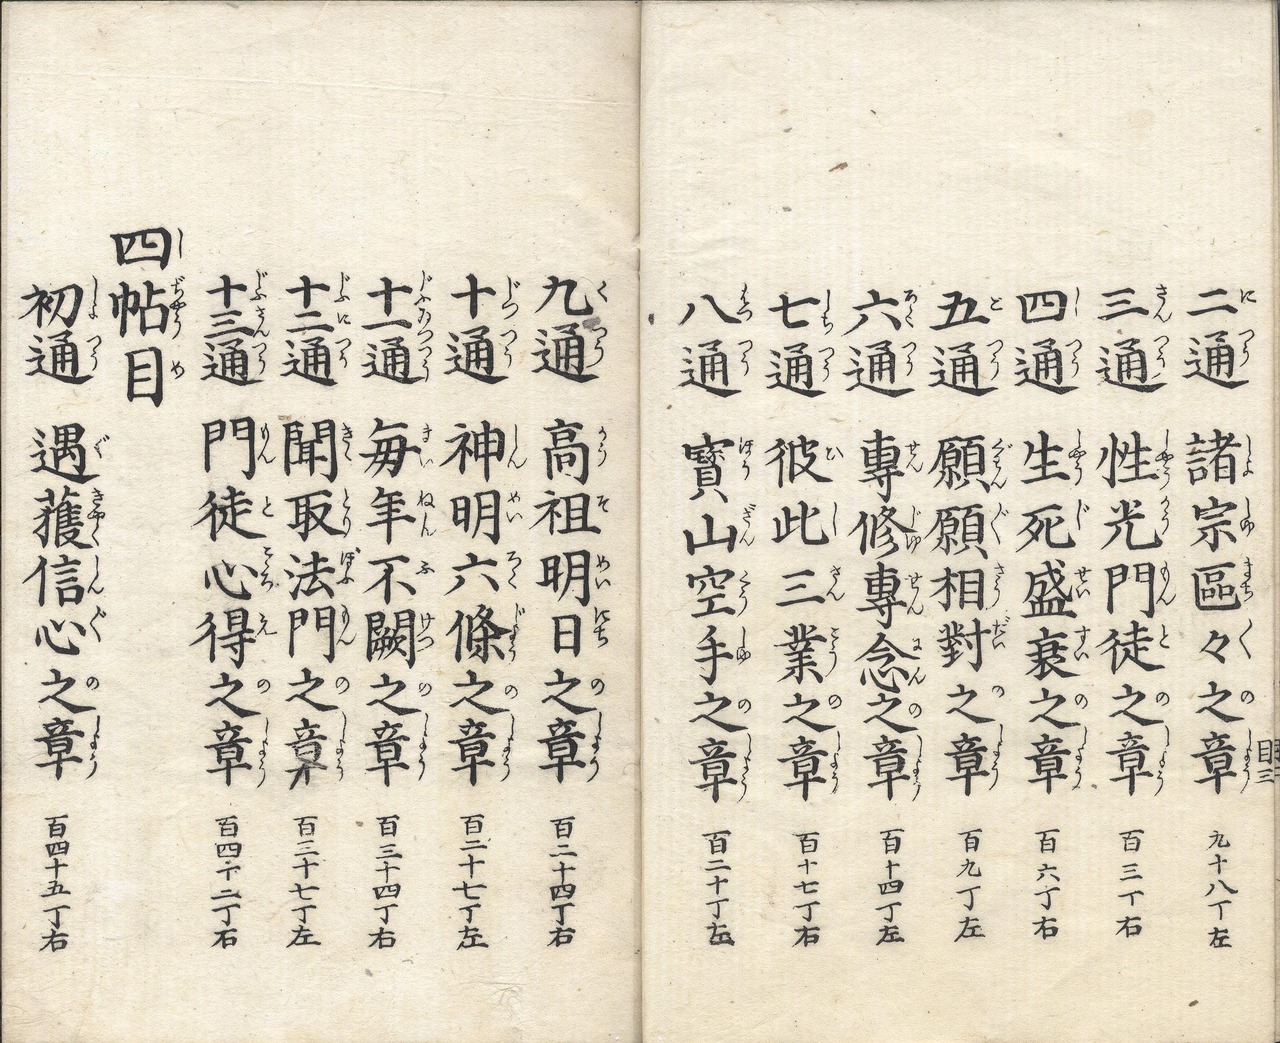 二通 諸宗區々之章 九十八丁左
三通 性光門徒之章 百三丁右
四通 生死盛衰之章 百六丁右
五通 願願相對之章 百九丁左
六通 專修專念之章 百十四丁左
七通 彼此三業之章 百十七丁右
八通 寶山空手之章 百二十丁左
九通 高祖明日之章 百二十四丁右
十通 神明六條之章 百二十七丁左
十一通 毎年不闕之章 百三十四丁右
十二通 聞取法門之章 百三十七丁左
十三通 門徒心得之章 百四十二丁右
四帖目
初通 遇獲信心之章 百四十五丁右